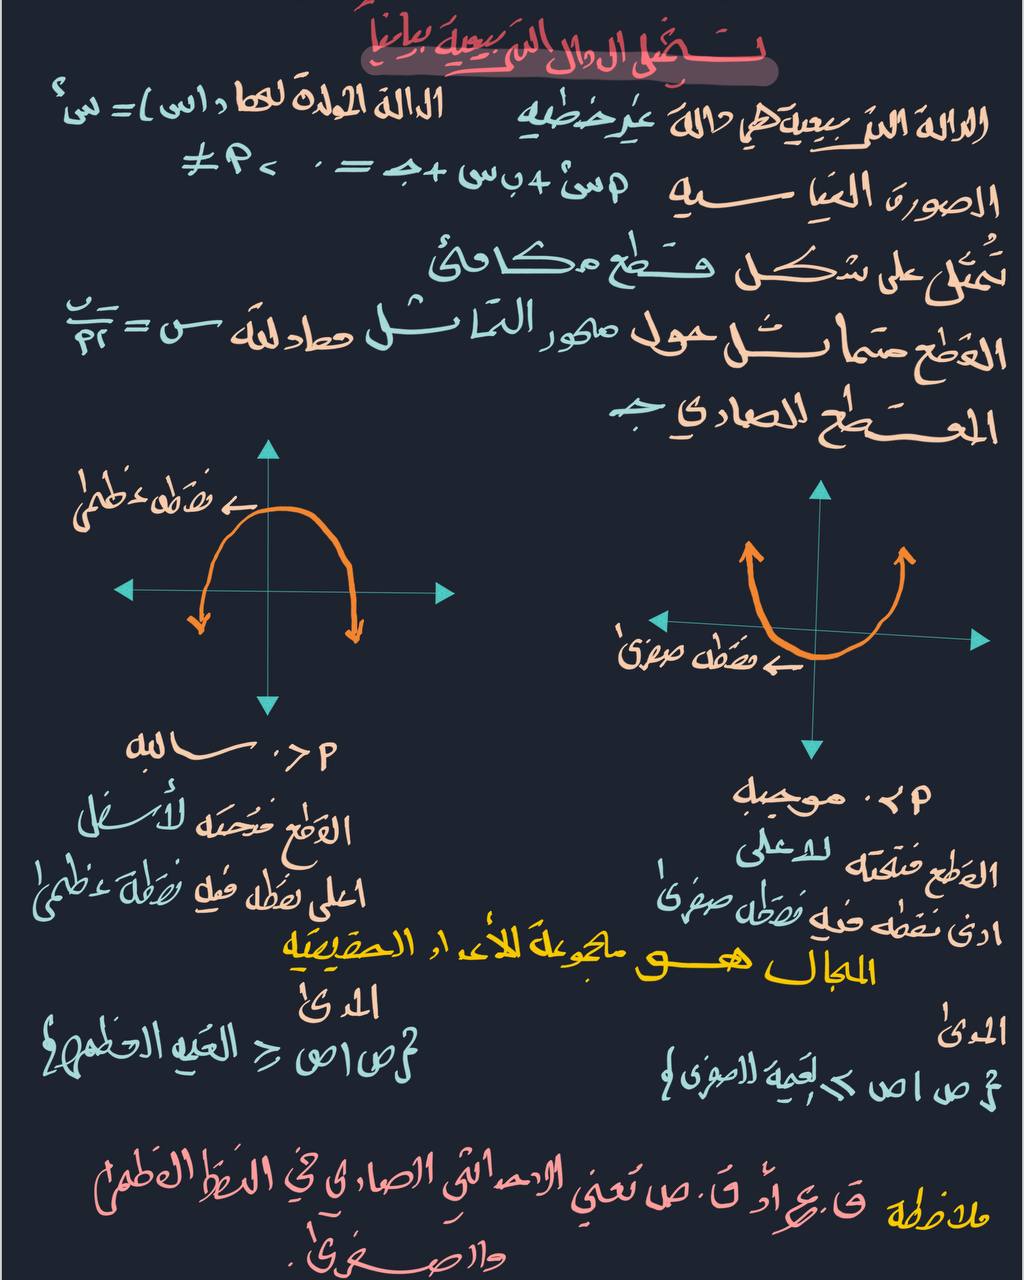 تمثيل الدوال التربيعية بيانياً
الدالة التربيعية هي دالة غير خطيه الدالة المولدة لها د(س) = س²
الصورة القياسيه ٢س² + ب س + جـ = ٠ ، ٢ ≠
تُمثل على شكل قطع مكافئ
القطع متماثل حول محور التماثل معادلته س = -ب/٢٢
المقطع الصادي جـ
نقطه عظمىٰ ←
نقطه صغرىٰ ←
٢ > ٠ موجبه
القطع فتحته للاعلى
ادنى نقطه فيه نقطه صغرىٰ
٢ < ٠ سالبه
القطع فتحته لأسفل
اعلى نقطه فيه نقطة عظمىٰ
المجال هو مجموعة الأعداد الحقيقيه
المدىٰ
{ص | ص ≥ القيمة الصغرى}
المدىٰ
{ص | ص ≤ القيمه العظمى}
ملاحظه ق.ع أو ق.ص تعني الاحداثي الصادي في النقط العظمىٰ
والصغرىٰ.